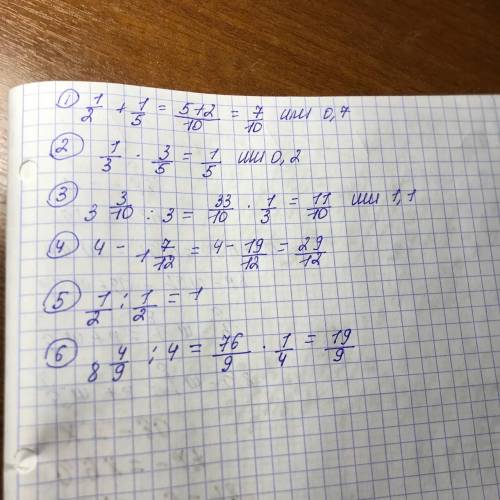 ① 1/2 + 1/5 = 5+2/10 = 7/10 или 0,7
② 1/3 · 3/5 = 1/5 или 0,2
③ 3 3/10 : 3 = 33/10 · 1/3 = 11/10 или 1,1
④ 4 - 1 7/12 = 4 - 19/12 = 29/12
⑤ 1/2 : 1/2 = 1
⑥ 8 4/9 : 4 = 76/9 · 1/4 = 19/9